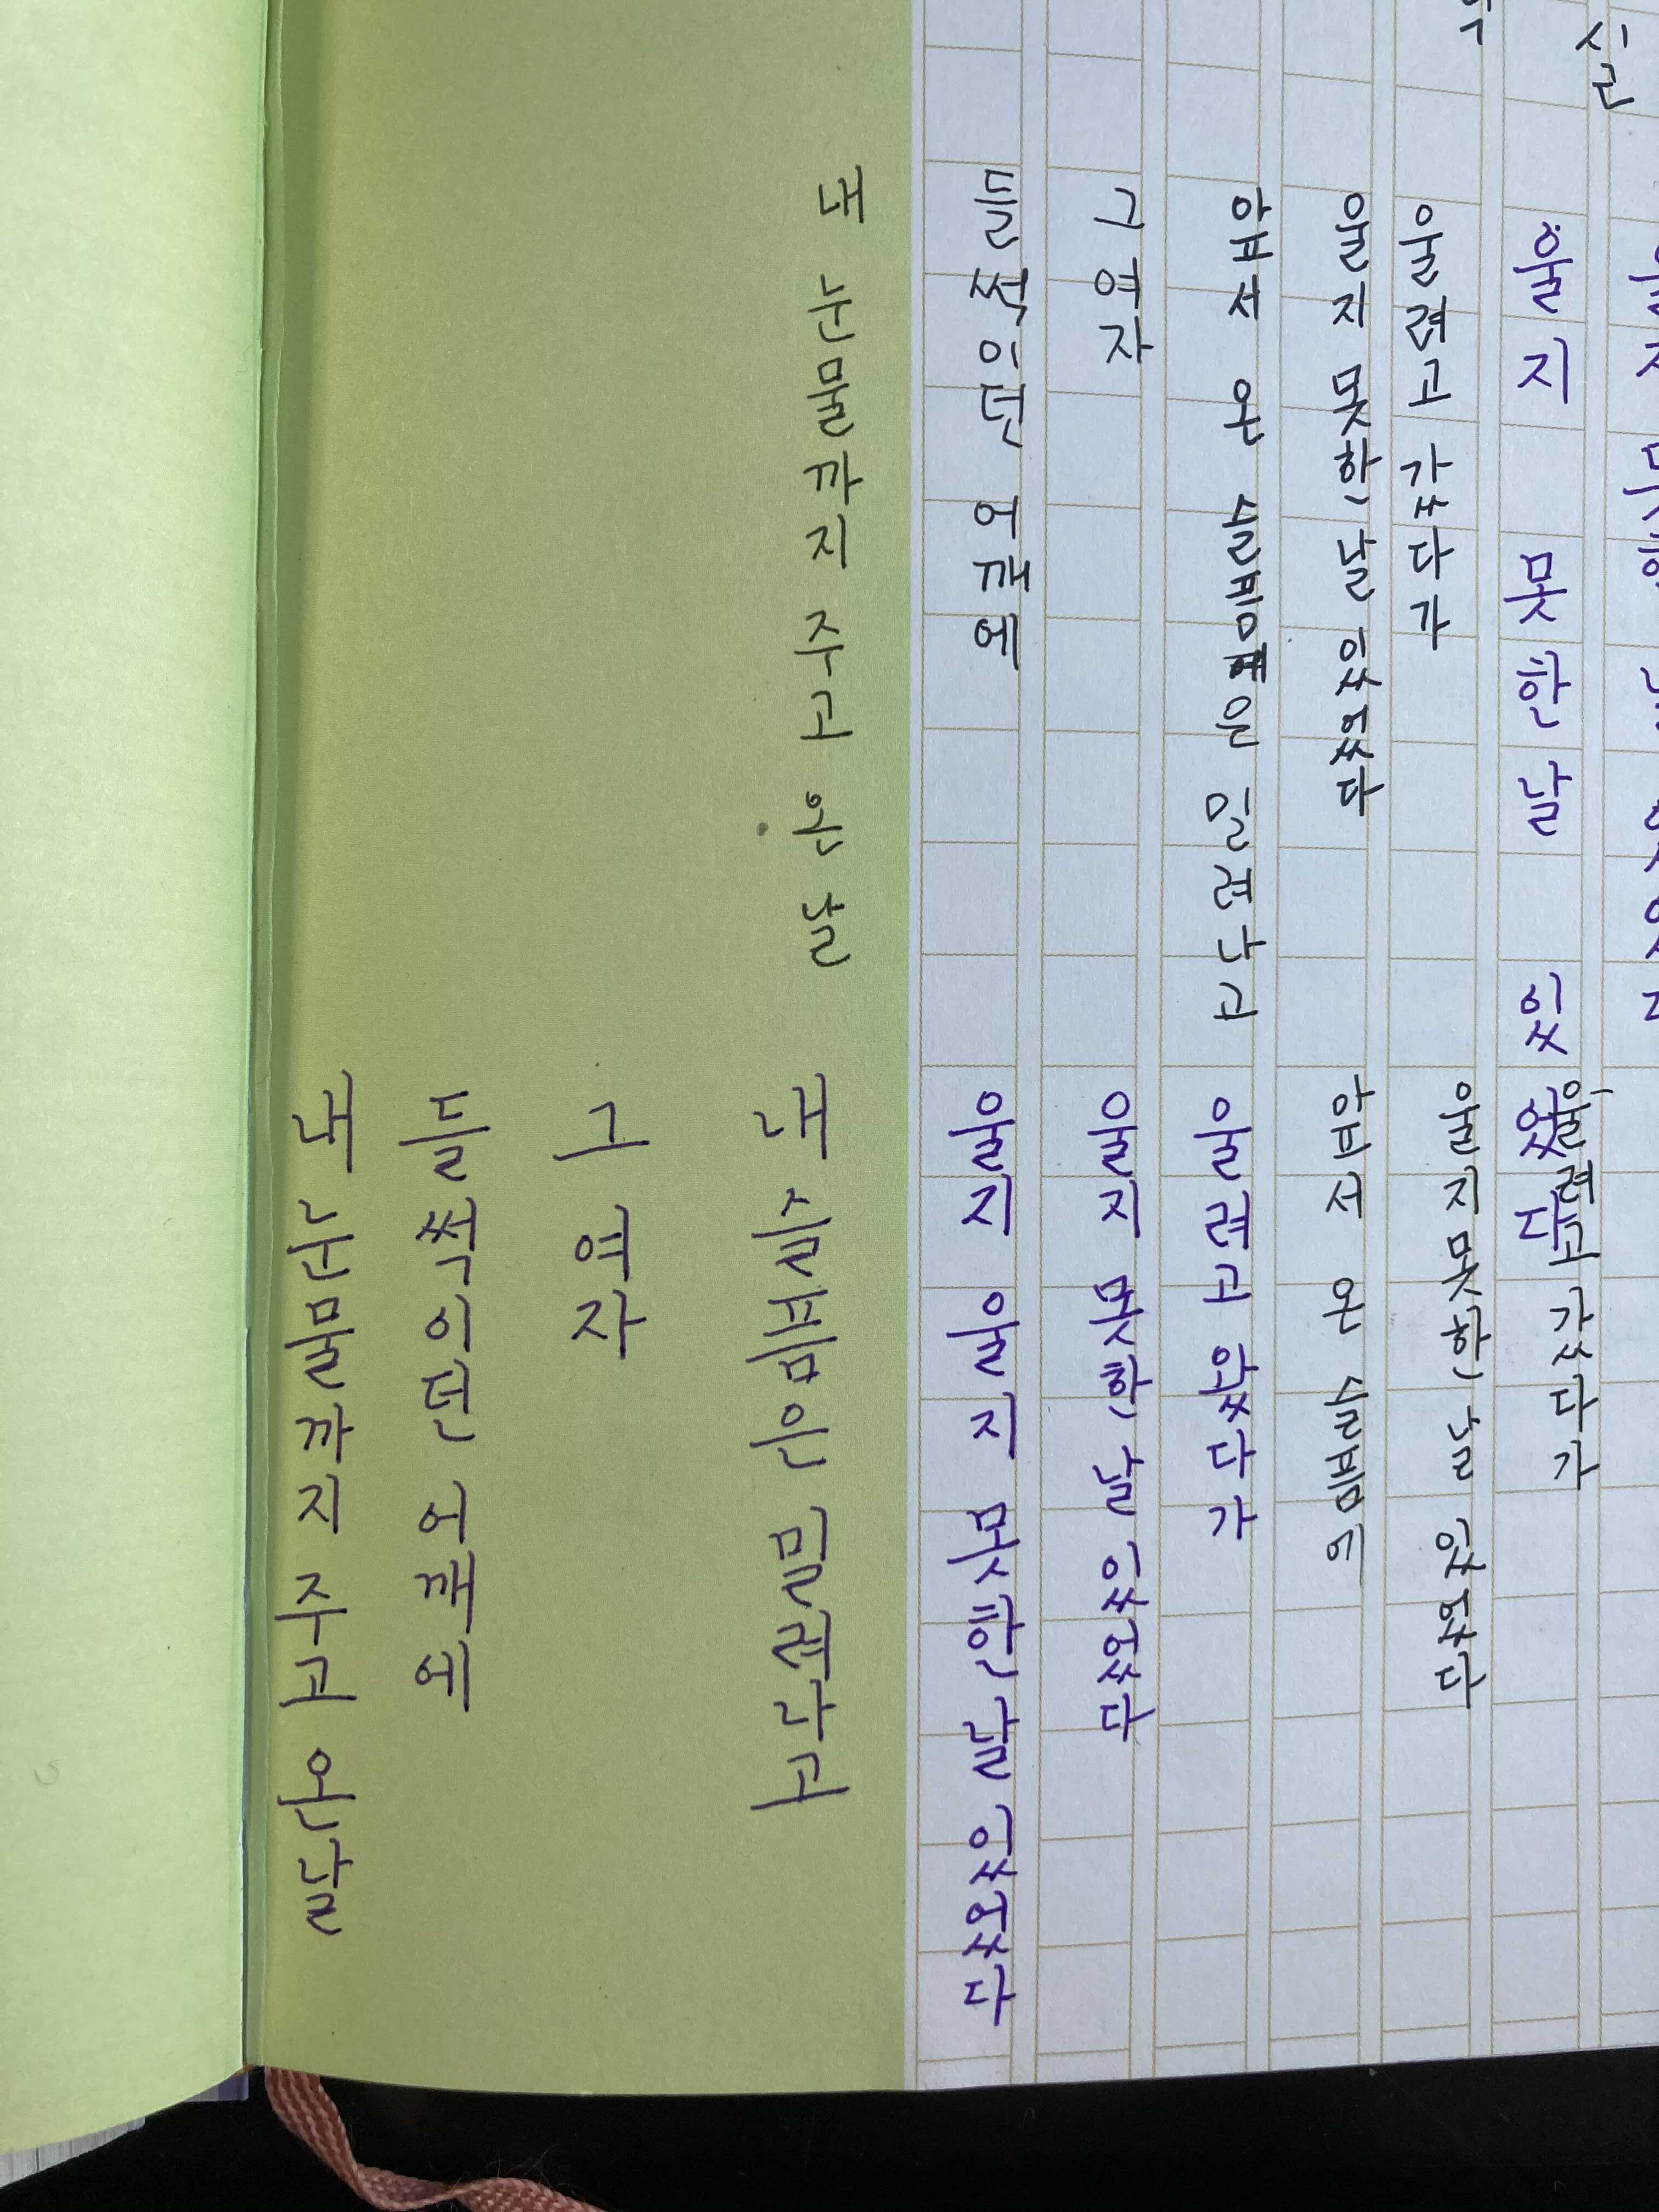 울지 못한 날 있었다
울려고 갔다가
울지 못한 날 있었다
앞서 온 슬픔은 밀려나고
그 여자
들썩이던 어깨에
내 눈물까지 주고 온 날
울려고 갔다가
울지 못한 날 있었다
앞서 온 슬픔에
울려고 왔다가
울지 못한 날 있었다
울지 울지 못한 날 있었다
내 슬픔은 밀려나고
그 여자
들썩이던 어깨에
내 눈물까지 주고 온 날